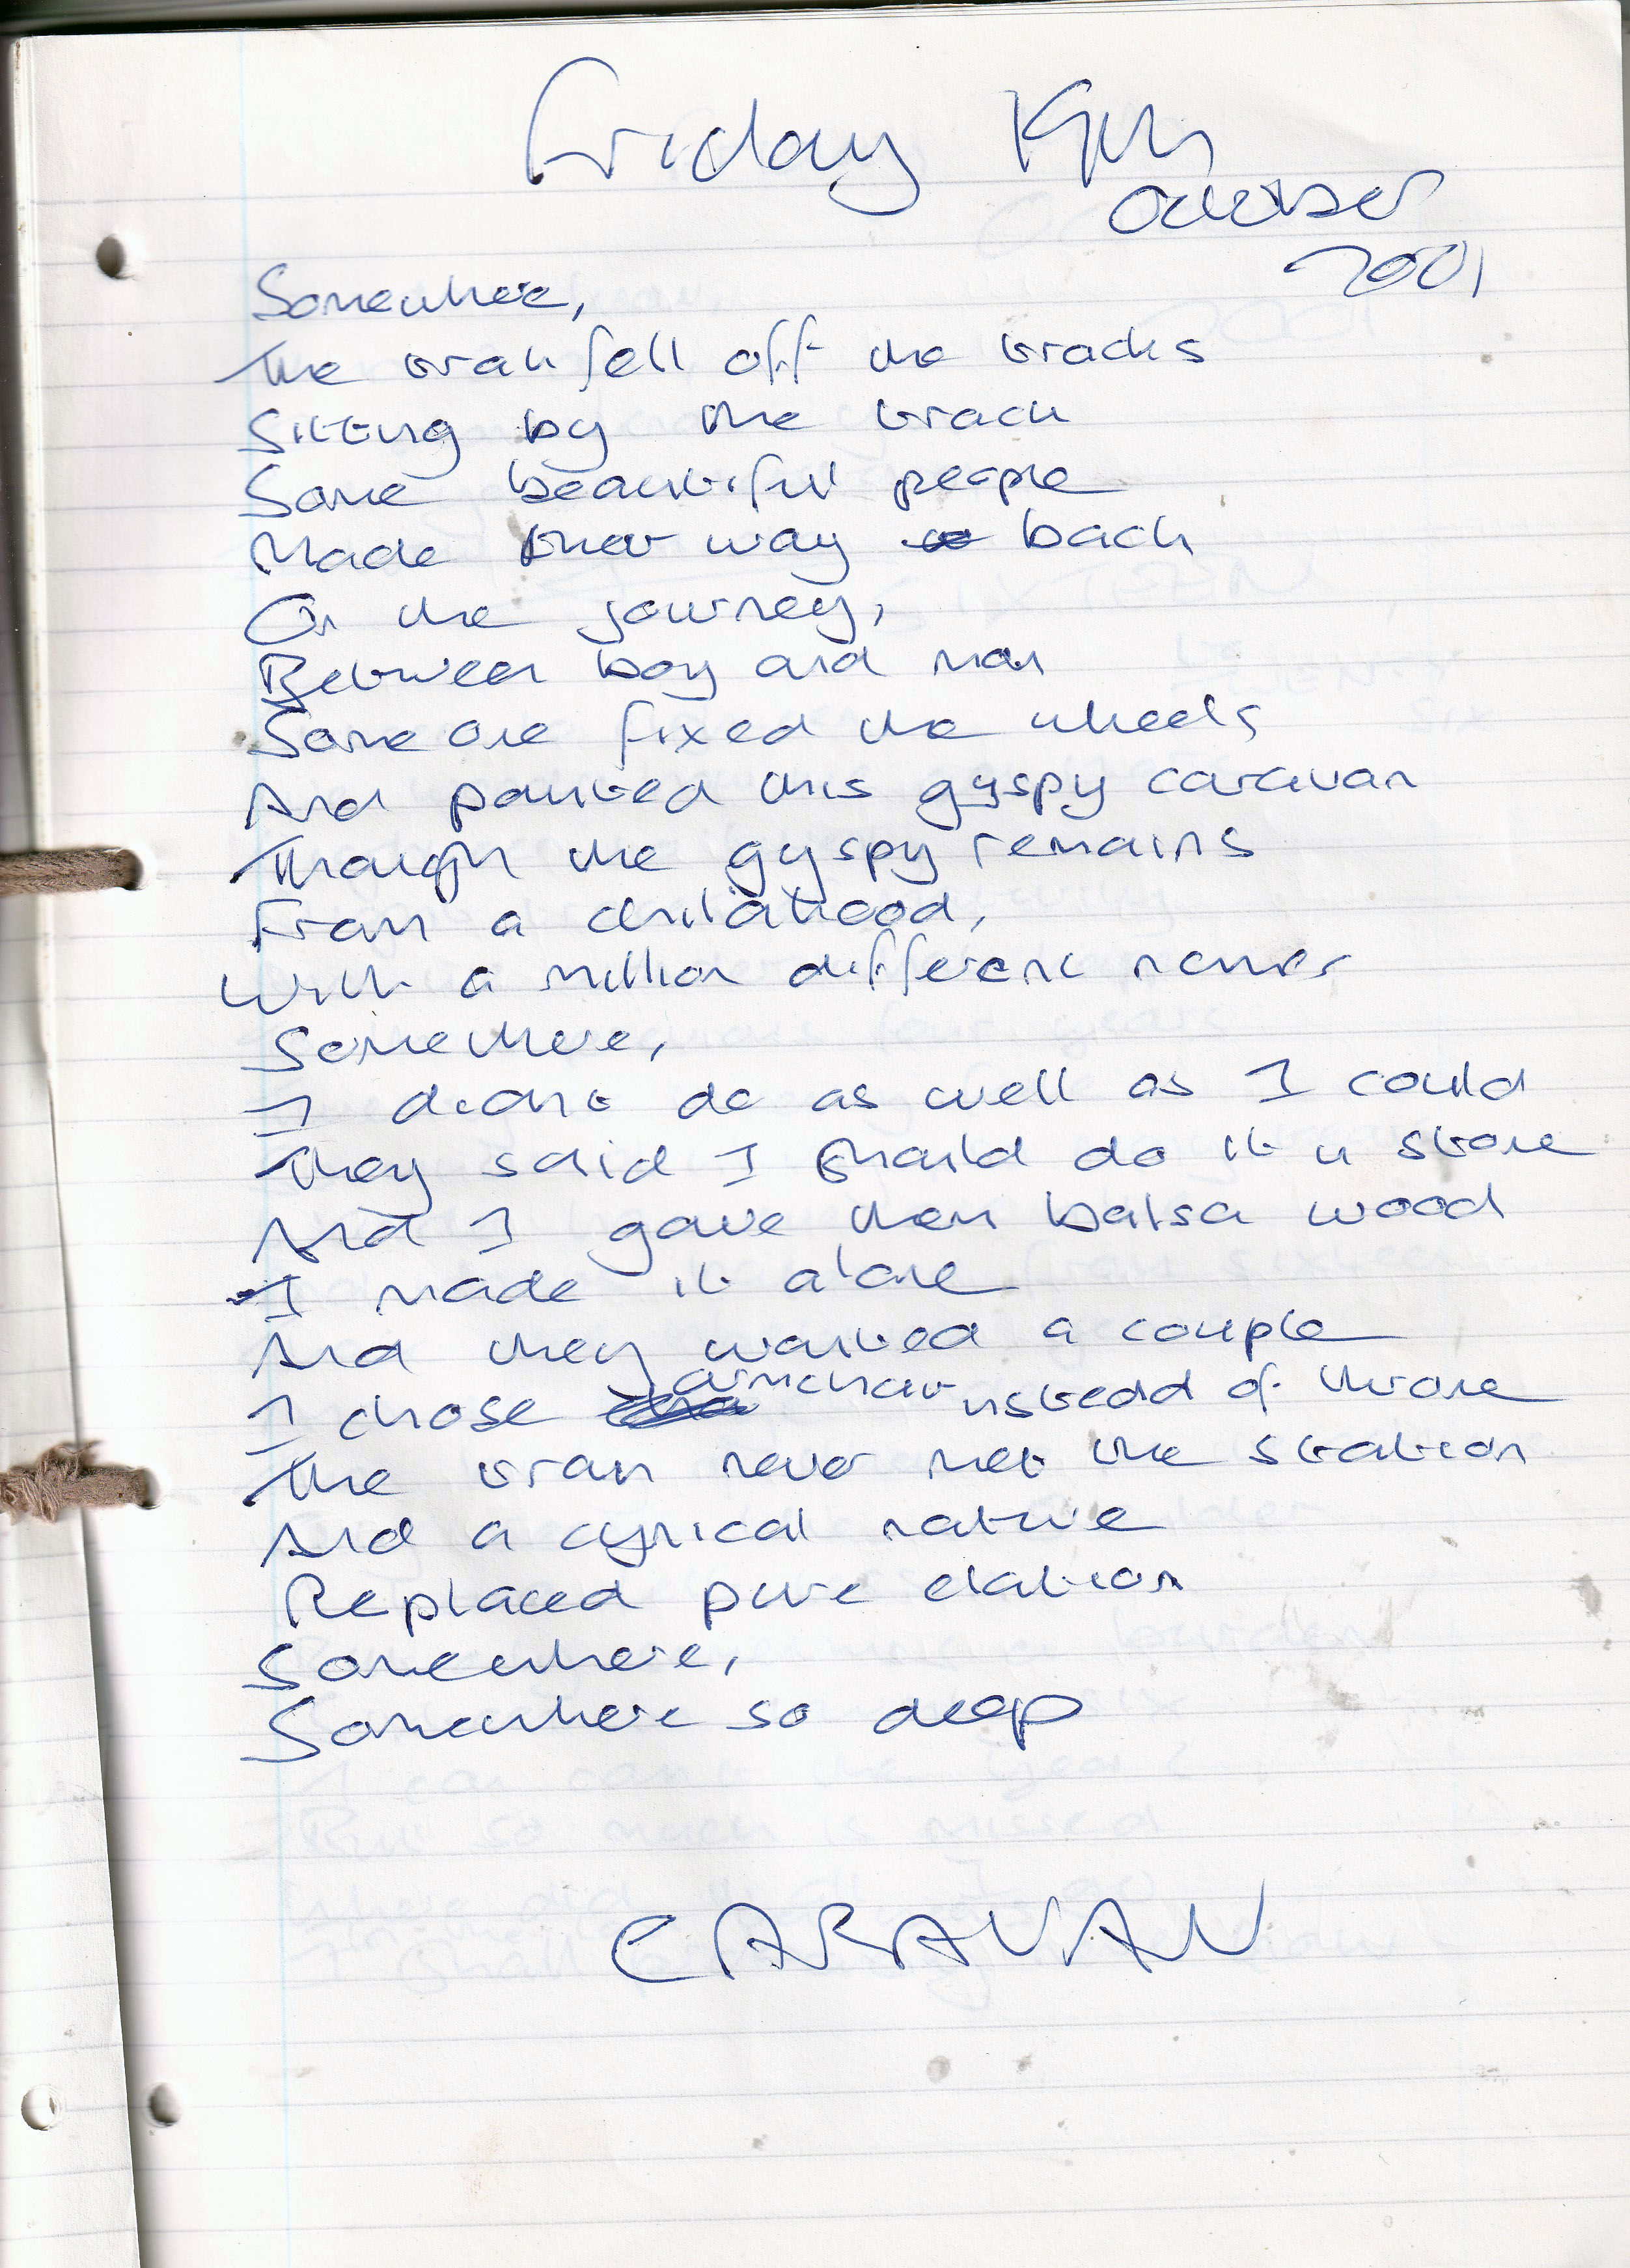 Friday 19th
October
2001
Somewhere,
The train fell off the tracks
Sitting by the track
Some beautiful people
Made their way back
On the journey,
Between boy and man
Someone fixed the wheels
And painted this gyspy caravan
Though the gyspy remains
From a childhood,
With a million different names
Somewhere,
I didnt do as well as I could
They said I should do it in stone
And I gave them balsa wood
I made it alone
And they wanted a couple
I chose armchair instead of throne
The train never met the station
And a cynical nature
Replaced pure elation
Somewhere,
Somewhere so deep
CARAVAN